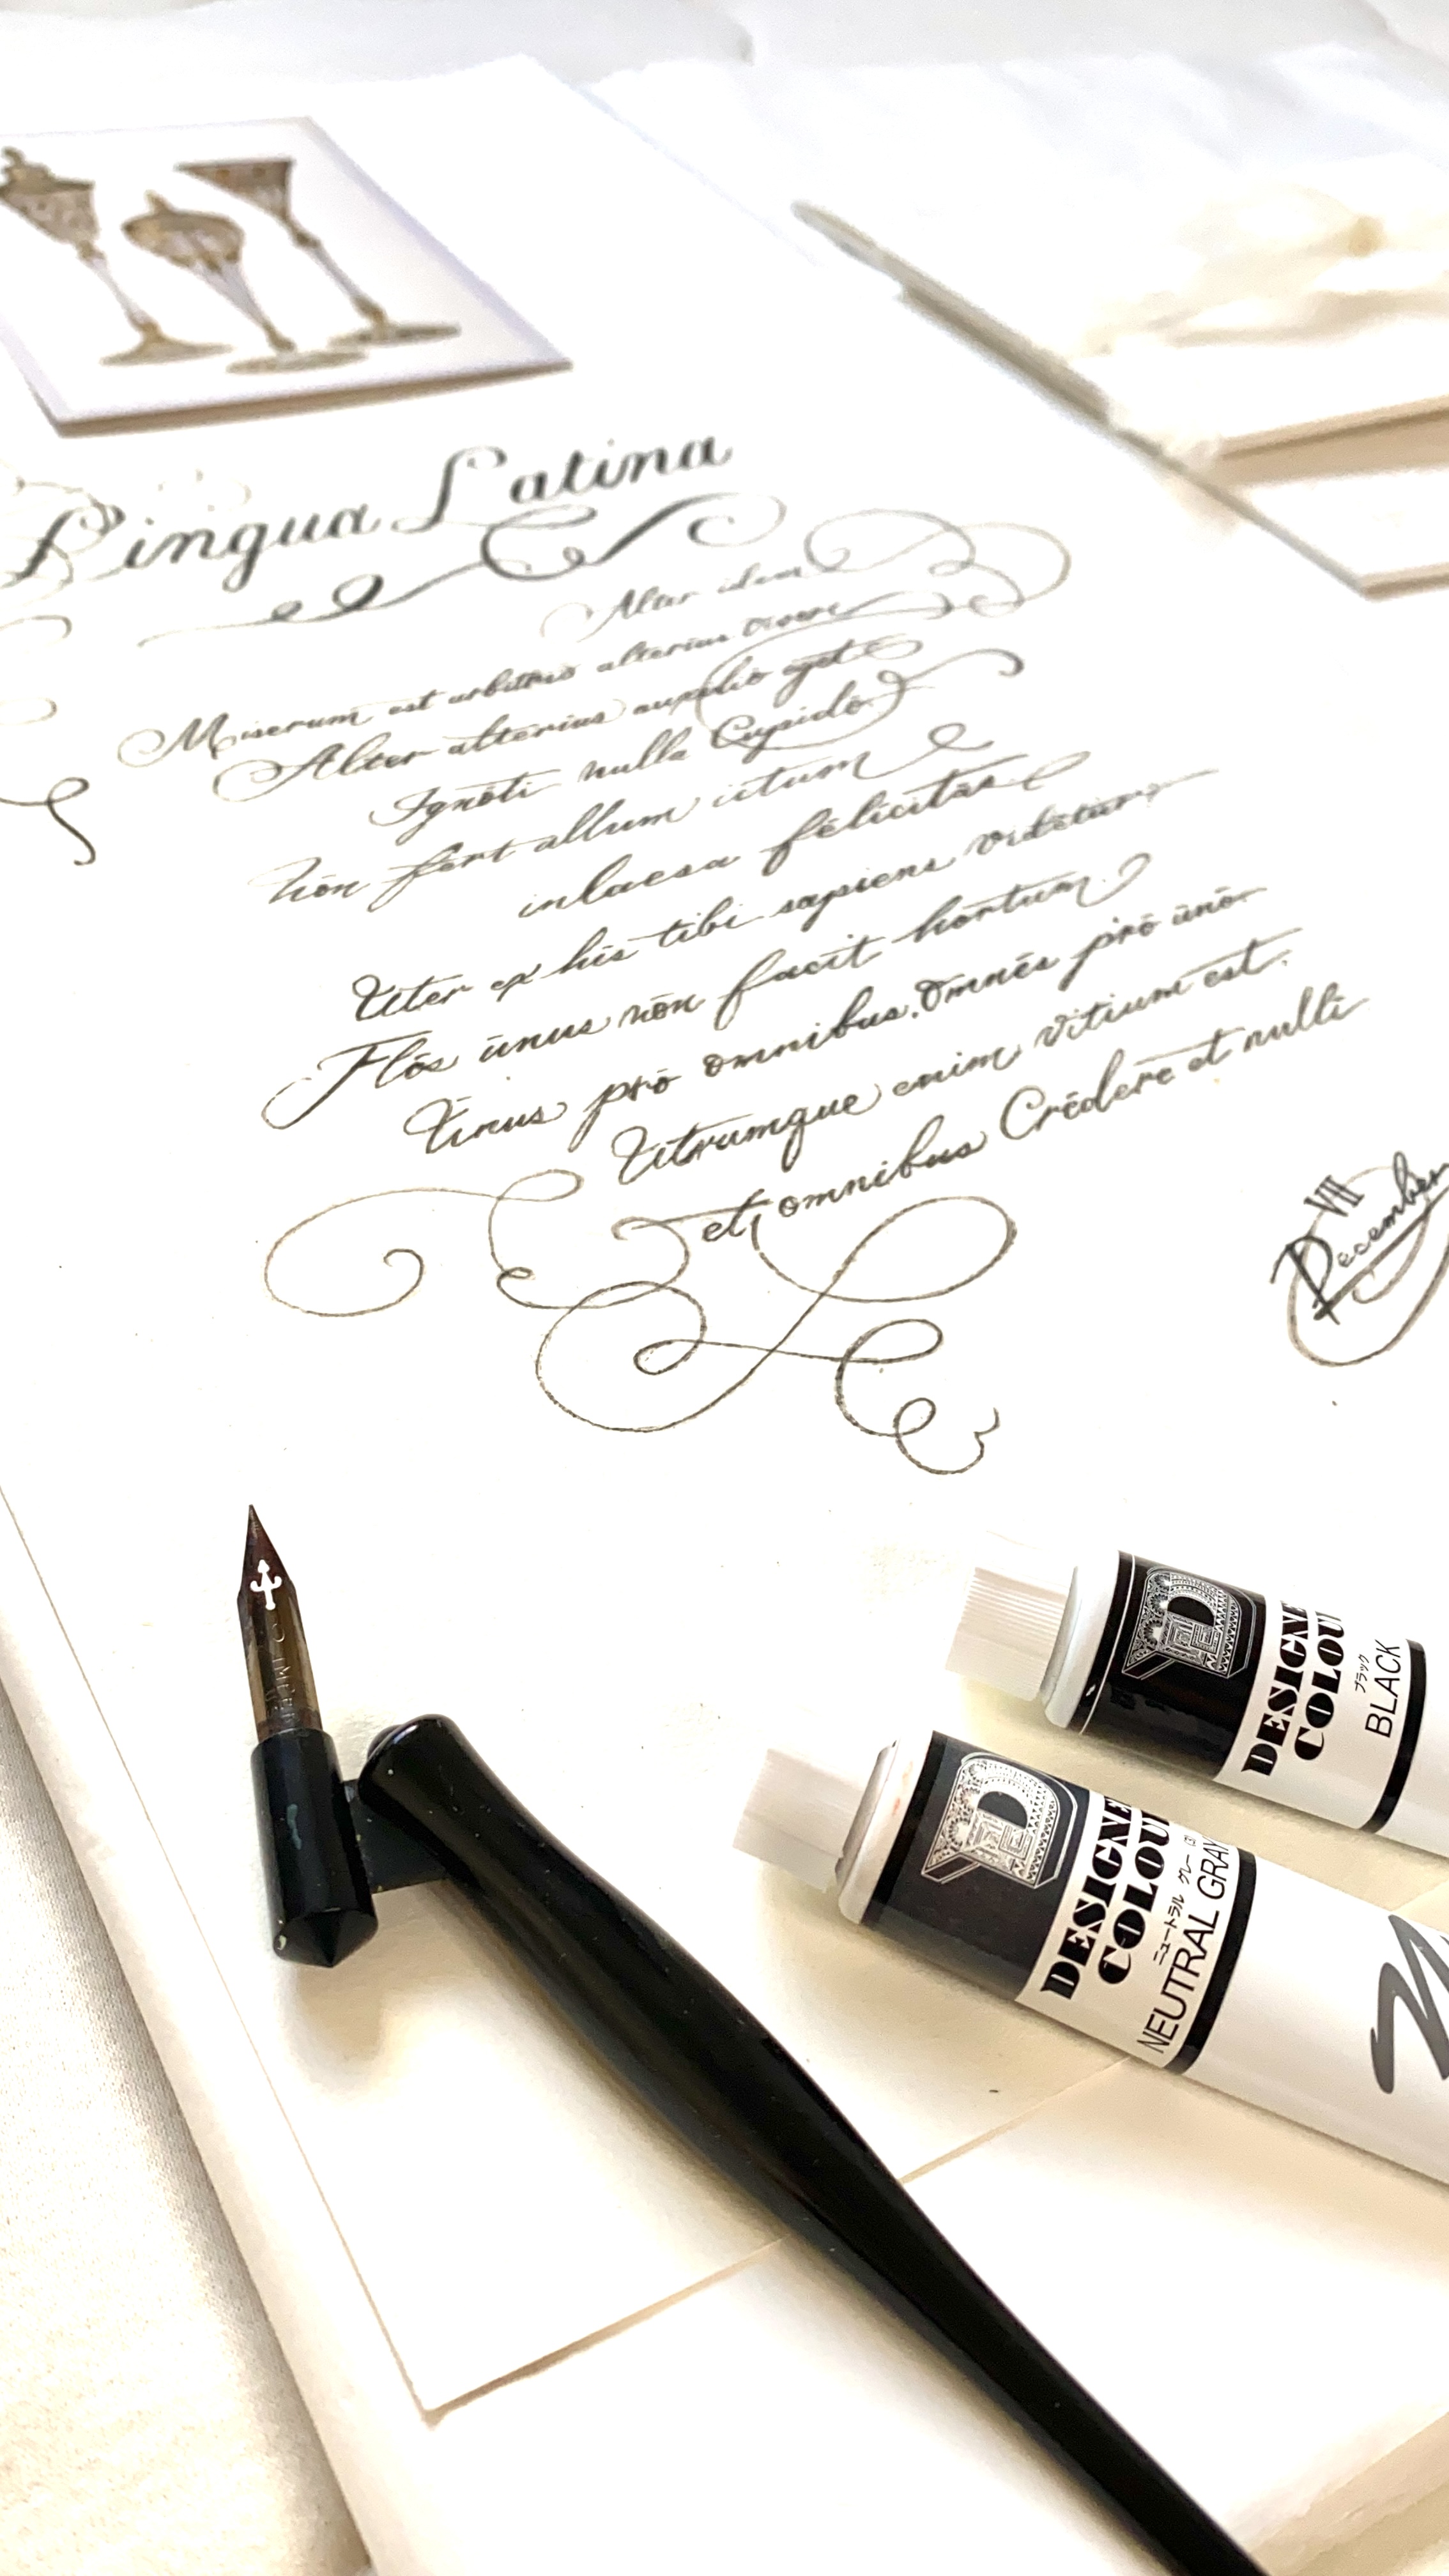 Lingua Latina
Alter idem
Miserum est arbitrio alterius vivere
Alter alterius auxilio eget
Ignōti nulla Cupīdō
Nōn fert ullum ictum
inlaesa fēlīcitās
Uter ex his tibi sapiens vidētur
Flōs ūnus nōn facit hortum
Ūnus prō omnibus. Omnēs prō ūnō.
Utrumque enim vitium est.
et omnibus Crēdere et nulli
VII
December
DESIGNE
COLOU
ブラック
BLACK
DESIGNE
COLOU
ニュートラル グレー
NEUTRAL GRAY